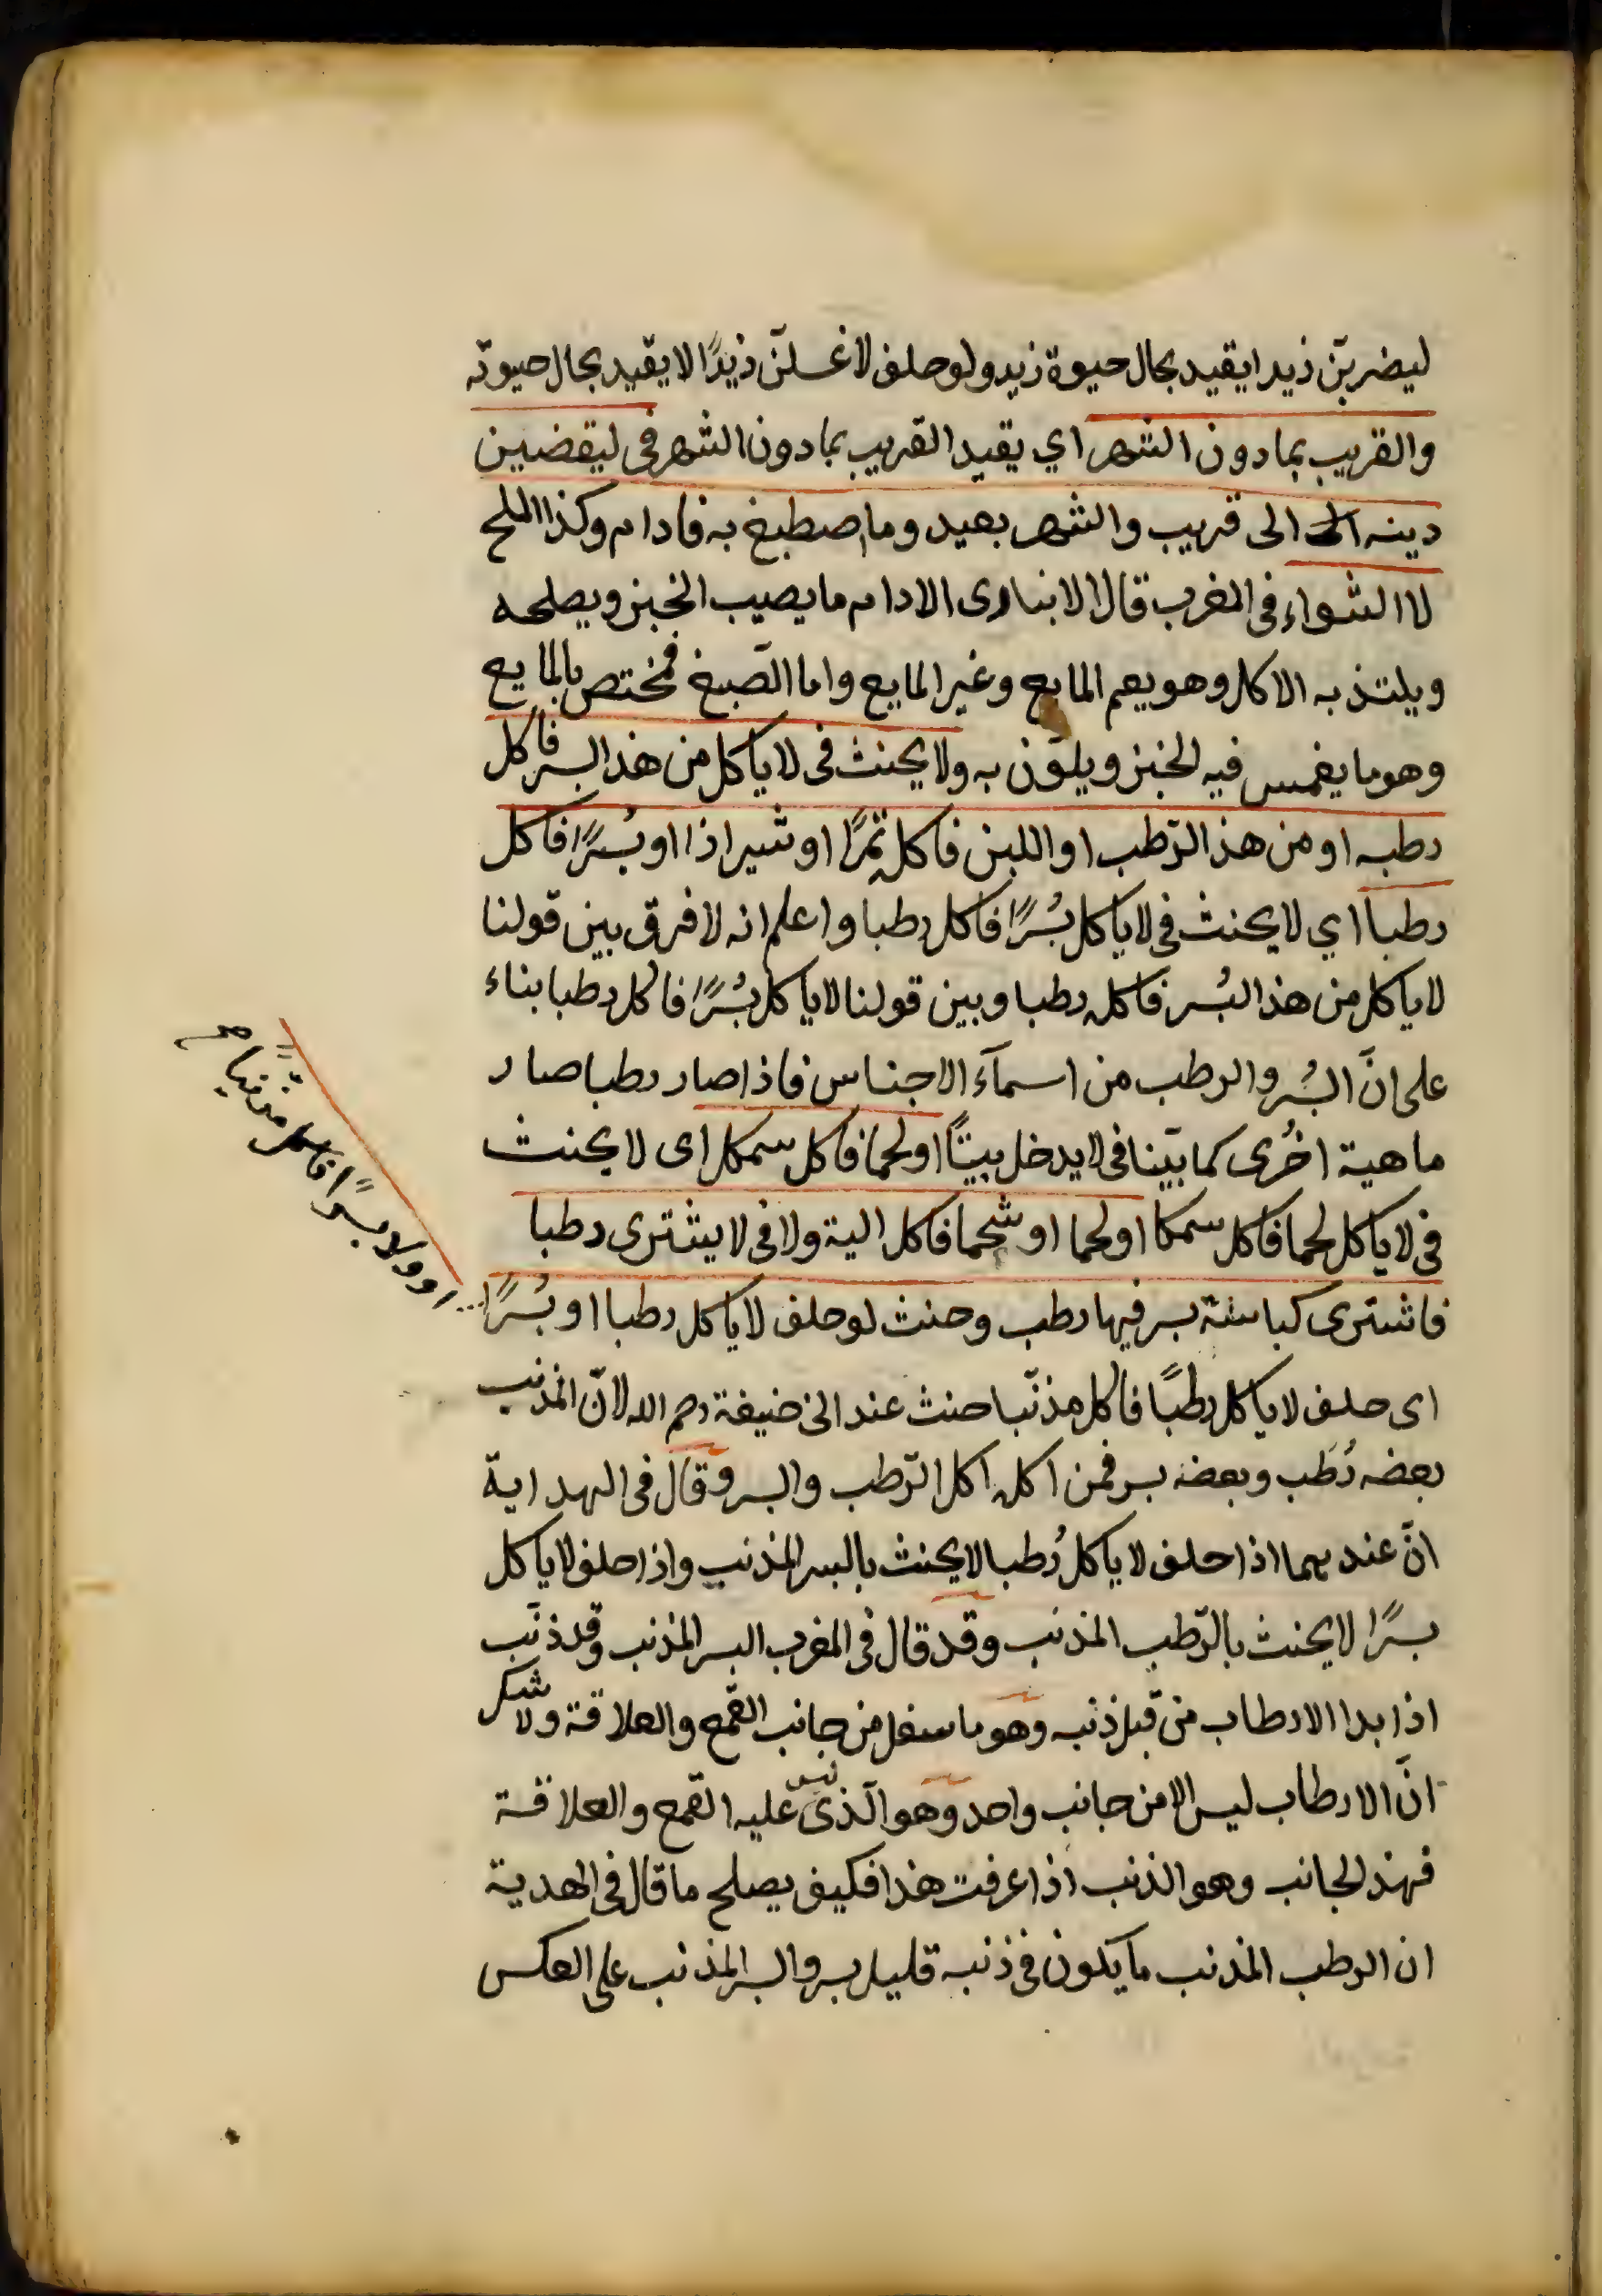 ليضربنّ زيدا يقيد بحال حيوة زيد ولو حلف لاغسلنّ زيدًا لا يقيد بحال حيوته
والقريب بمادون الشهر اي يقيد القريب بمادون الشهر فى ليقضين
دينه الى قريب والشهر بعيد وما اصطبغ به فادام وكذا الملح
لا الشواء فى المغرب قال الانبارى الادام ما يصيب الخبز ويصلحه
ويلتذ به الاكل وهو يعم المايع وغير المايع واما الصّبغ فمختص بالمايع
وهو ما يغمس فيه الخبز ويلوّن به ولا يحنث فى لا ياكل من هذ البسر فاكل
رطبه او من هذ الرّطب او اللبن فاكله تمرًا او شيرازا او بُسرًا فاكل
رطبا اي لا يحنث فى لا ياكل بُسْرًا فاكل رطبا واعلم انه لا فرق بين قولنا
لا ياكل من هذ البُسر فاكله رطبا وبين قولنا لا ياكل بُسْرًا فاكل رطبا بناء
على انّ البُسر والرطب من اسمآء الاجناس فاذا صار رطبا صار
ماهية اخُرى كما بيّنا فى لا يدخل بيتًا او لحما فاكل سمكا اى لا يحنث
فى لا ياكل لحما فاكل سمكا او لحما او شحما فاكل الية ولا فى لا يشترى رطبا
فاشترى كباسة بسر فيها رطب وحنث لو حلف لا ياكل رطبا او بُسْرًا
او ولا بسرًا فاكل مذنّبًا صح
اى حلف لا ياكل رطبًا فاكل مذنّبا حنث عند ابى حنيفة رحم الله لانّ المذنب
بعضه رُطَب وبعضه بسر فمن اكله اكل الرّطب والبسر وقال فى الهداية
انّ عندهما اذا حلف لا ياكل رُطبا لا يحنث بالبسر المذنب واذا حلف لا ياكل
بسرًا لا يحنث بالرّطب المذنب وقد قال فى المغرب البسر المذنب وقد ذنّب
اذا بدا الارطاب من قبل ذنبه وهو ما سفل من جانب القمع والعلاقة ولا شك
انّ الارطاب ليس الا من جانب واحد وهو الّذى ليس عليه القمع والعلاقة
فهذ الجانب وهو الذنب اذا عرفت هذا فكيف يصلح ما قال فى الهدية
ان الرطب المذنب ما يكون فى ذنبه قليل بسر والبسر المذنب على العكس